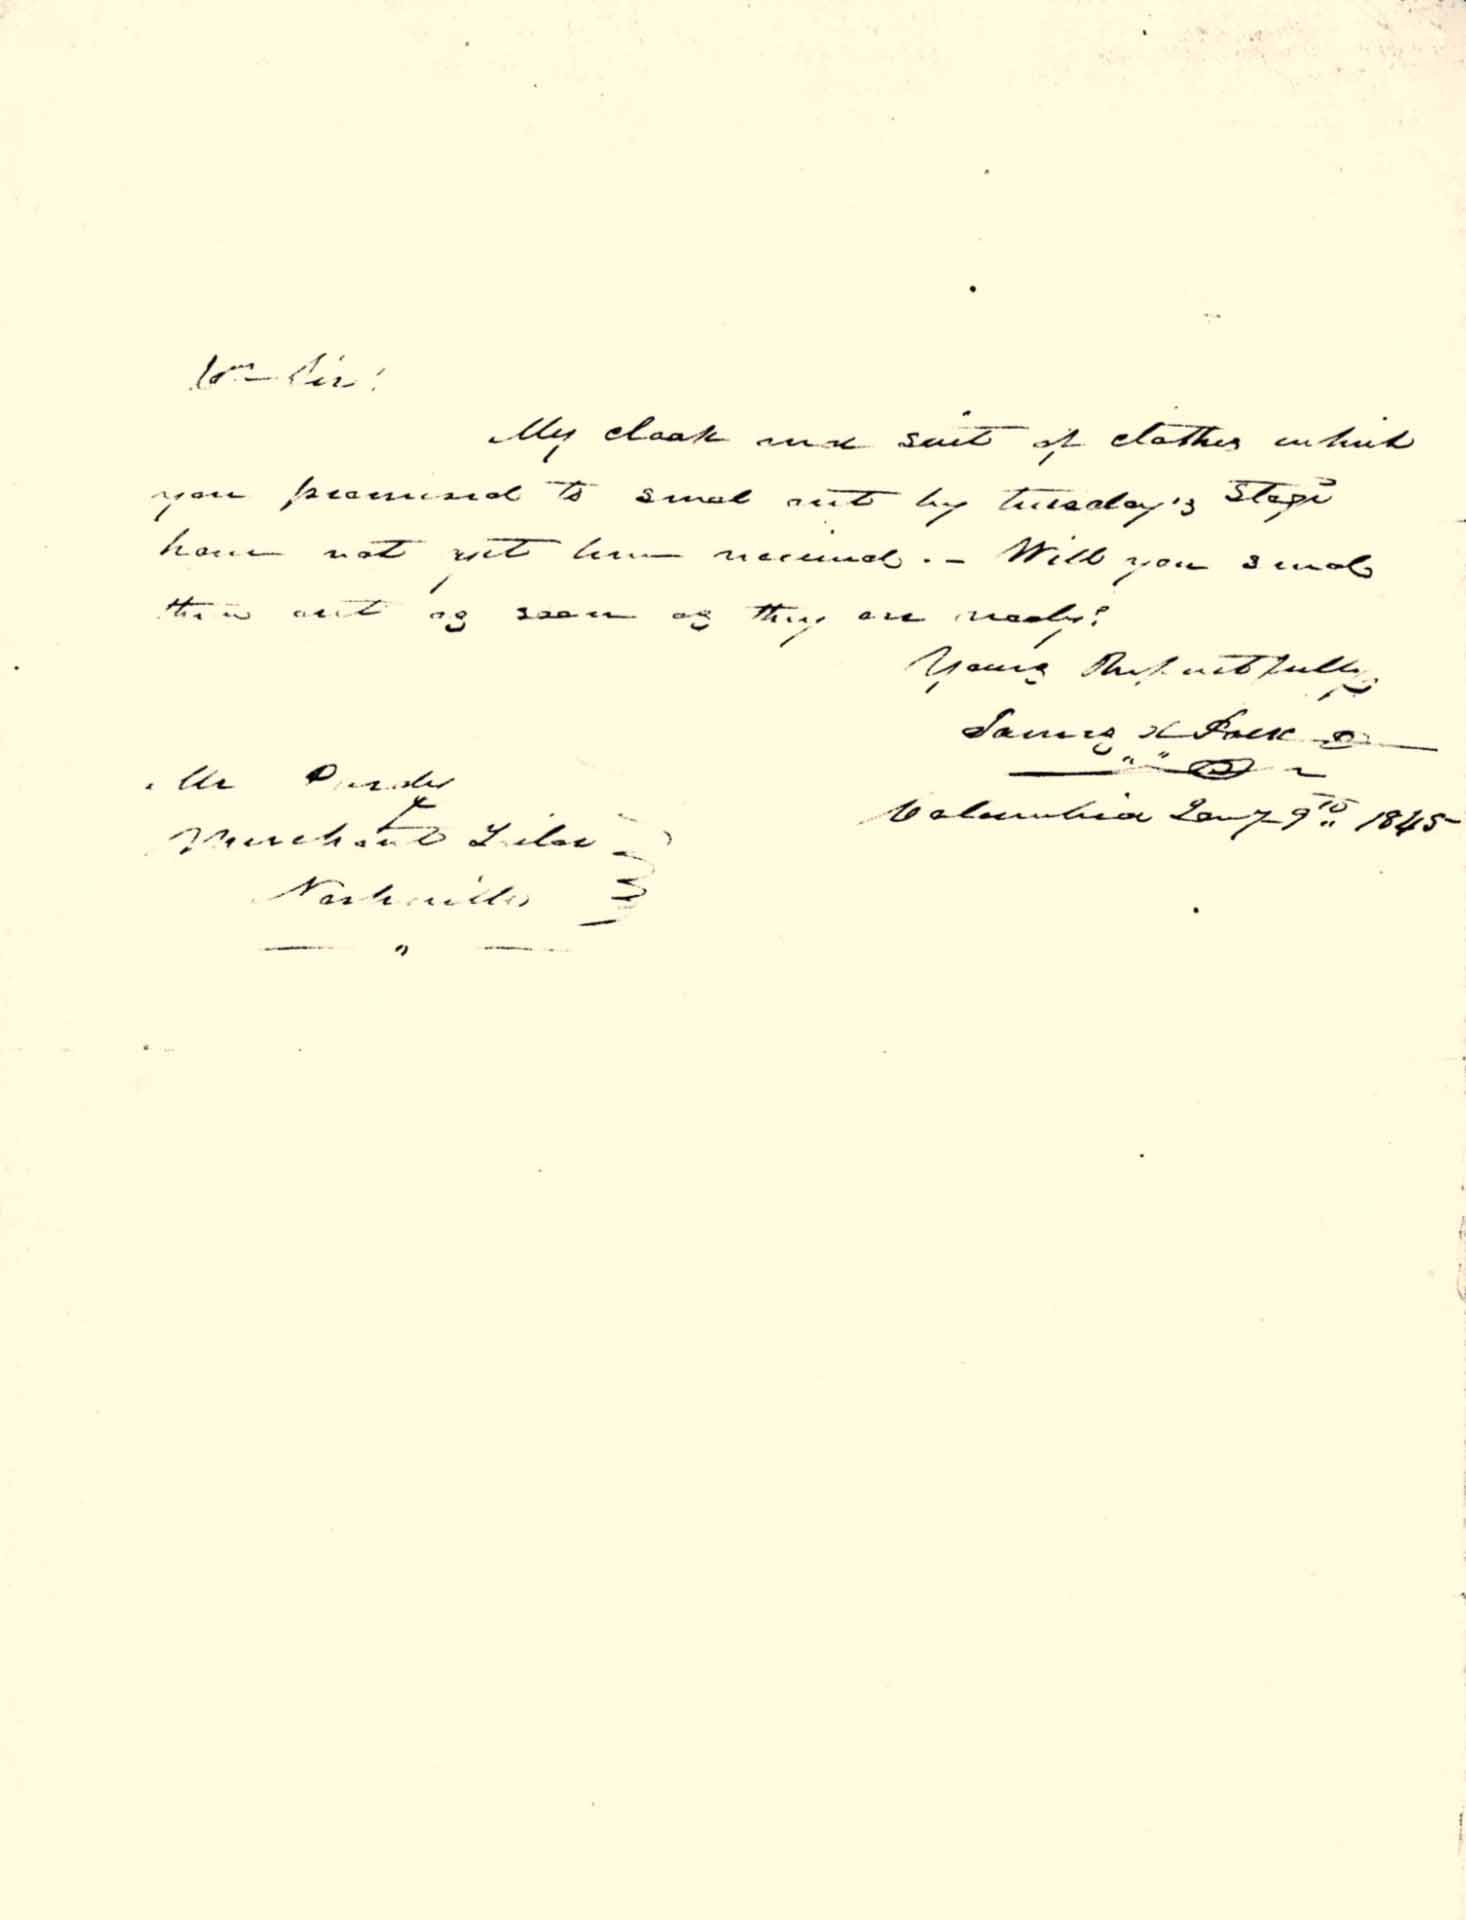 Sir!
My cloak and suit of clothes which
you promised to send out by tuesday's Stage
have not yet been received. – Will you send
them out as soon as they are ready?
Yours Respectfully
James K Polk
Mr
Merchant Tailor
Nashville
Columbia Jany 9th 1845